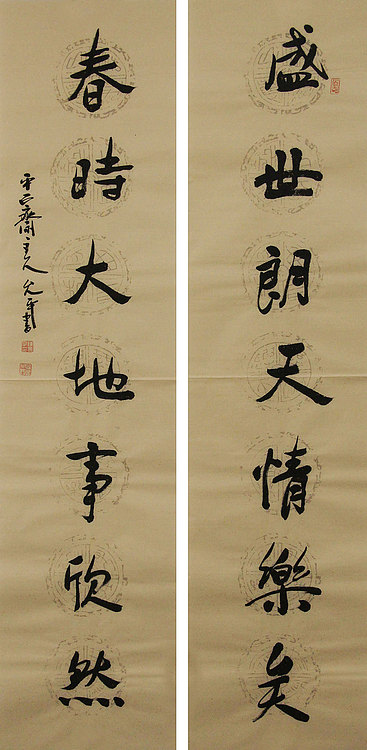 盛世朗天情樂矣
春時大地事欣然
平常齋主人允平書